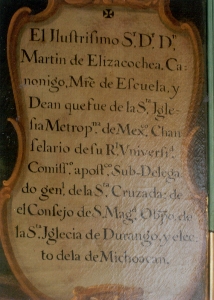 El Illustrisimo S.ʳ D.ʳ D.ⁿ
Martin de Elizacochea, Ca-
nonigo, Mrẽ de Escuela, y
Dean que fue de la S.ᵗᵃ Igle-
sia Metrop.ⁿᵃ de Mex.ᶜᵒ Chan
selario de su R.ˡ Vniversi.ᵈ
Comiss.ᵒ apost.ᶜᵒ Sub-Delega
do gen.ˡ de la S.ᵗᵃ Cruzada: de
el Consejo de S. Mag.ᵈ Obpo, de
la S.ᵗᵃ Iglecia de Durango, y elec-
to de la de Michoacan.